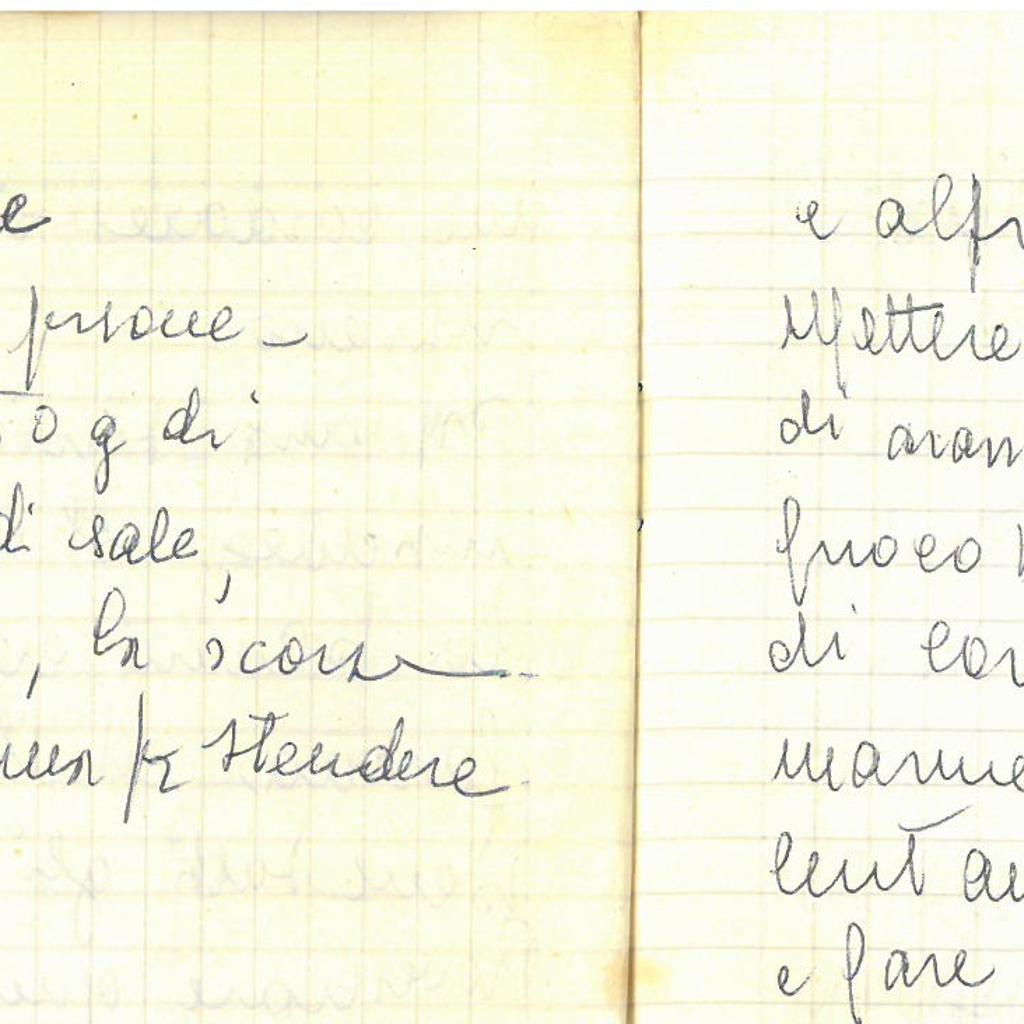 e
prione
50 g di
di sale,
, la scorza
stendere
e alfr
Mettere
di aran
fuoco
di cor
marme
lent
e fare